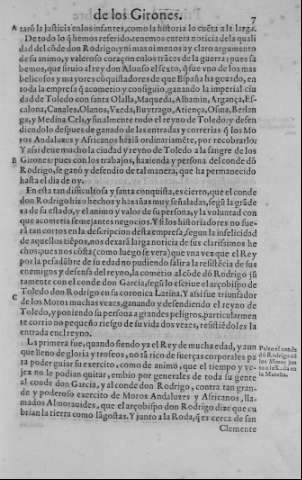 de los Girones. 7
A taró la justicia en los infantes, como la historia lo cuẽta a la larga.
De todo lo q̃ hemos referido, tenemos entera noticia dela quali
dad del cõde don Rodrigo, y ni mas ni menos ay claro argumento
de su animo, y valeroso coraçon en los trãces de la guerra: pues sa
bemos, que siruio al rey don Alonso el sexto, q̃ fue vno de los mas
belicosos y mayores cõquistadores de que España ha gozado, en
toda la empresa q̃ acometio y consiguio, ganando la imperial ciu
dad de Toledo con santa Olalla, Maqueda, Alhamin, Argança, Es-
calona, Canales, Olanos, Yaeda, Buytrago, Atiença, Osma, Berlan
ga, y Medina Celi, y finalmente todo el reyno de Toledo: y defen
diendolo despues de ganado de las entradas y correrias q̃ los Mo
ros Andaluzes y Africanos haziã ordinariamẽte, por recobrarlo:
Y assi deue mucho la ciudad y reyno de Toledo a la sangre de los
B Girones: pues con los trabajos, hazienda y persona del conde dõ
Rodrigo, se ganó y defendio de tal manera, que ha permanecido
hasta el dia de oy.
En esta tan dificultosa y santa conquista, es cierto, que el conde
don Rodrigo hizo hechos y hazañas muy señaladas, segũ la grãde
za de su estado, y el animo y valor de su persona, y la voluntad con
que acometia semejantes negocios. Y si los historiadores no fue-
rã tan cortos en la descripcion desta empresa, segun la infelicidad
de aquellos tiẽpos, nos dexarã larga noticia de sus clarissimos he
chos: pues nos cõsta (como luego se vera) que vna vez que el Rey
por la pesadũbre de su edad no pudiendo salir a la resistẽcia de sus
enemigos y defensa del reyno, la cometio al cõde dõ Rodrigo jũ
tamente con el conde don Garcia, segũ lo escriue el arçobispo de
Toledo don Rodrigo en su coronica Latina. Y assi fue triunfador
C de los Moros muchas vezes, ganando y defendiendo el reyno de
Toledo, y poniendo su persona a grandes peligros, particularmen
te corrio no pequeño riesgo de su vida dos vezes, resistiẽdoles la
entrada en el reyno.
La primera fue, quando siendo ya el Rey de mucha edad, y aun
que lleno de gloria y trofeos, no tã rico de fuerças corporales pa
ra poder guiar su exercito, como de animo, que el tiempo y ve-
jez no le podian quitar, embio por generales de toda su gente
al conde don Garcia, y al conde don Rodrigo, contra tan gran-
de y poderoso exercito de Moros Andaluzes y Africanos, lla-
mados Almorauides, que el arçobispo don Rodrigo dize que cu
brian la tierra como lãgostas. Y junto a la Roda, q̃ es cerca de san
Clemente
Pelea el conde
dõ Rodrigo cõ
los Moros jun
la Mancha.